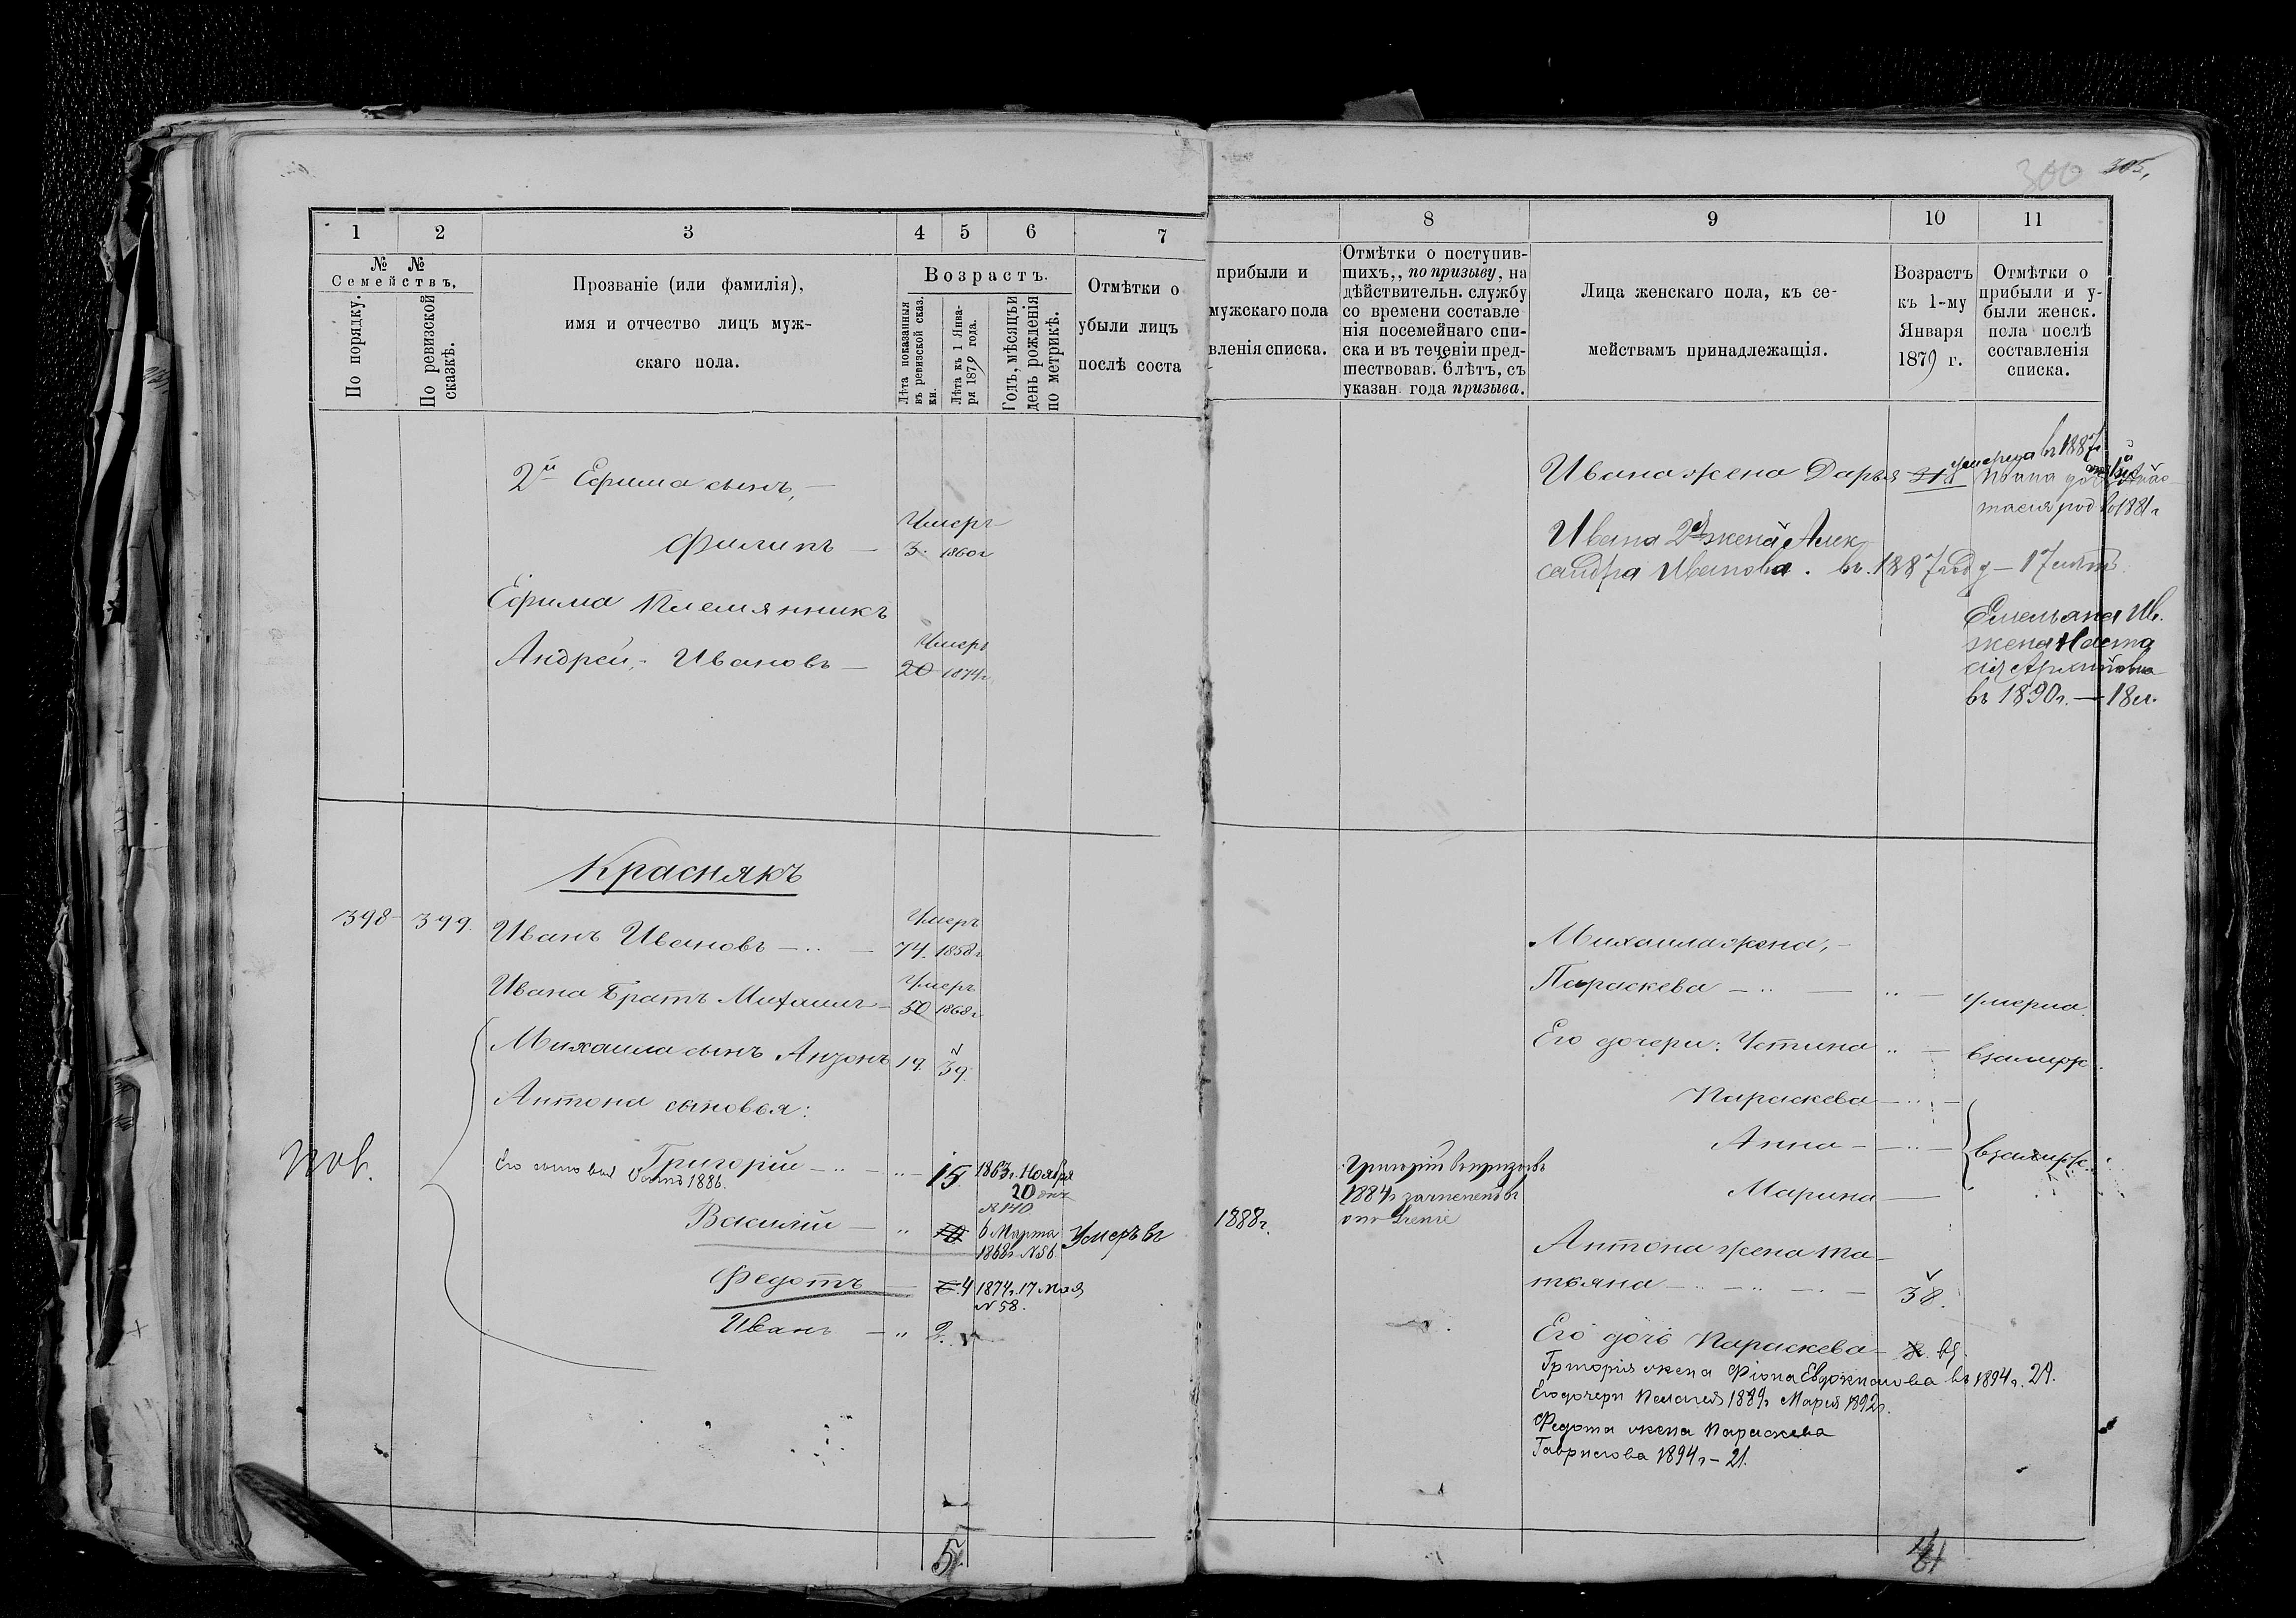 300 305,
1 2 3 4 5 6 7
№ № Семействъ.
По порядку.
По ревизской сказкѣ.
Прозваніе (или фамилія),
имя и отчество лицъ муж-
скаго пола.
Возрастъ.
Лѣта показанныя въ ревизской сказ. ки.
Лѣта къ 1 Янва- ря 1879 года.
Годъ, мѣсяцъ и день рожденія по метрикѣ.
Отмѣтки о
убыли лицъ
послѣ соста
2й Ефима сынъ, —
Филипъ — 3. Умеръ 1860 г
Ефима Племянникъ
Андрей, - Ивановъ — 20 Умеръ 1874 г.
Краснякъ
398 399. Иванъ Ивановъ — 74. Умеръ 1858 г
Ивана Братъ Михаилъ — 50 Умеръ 1868 г
Михаила сынъ Антонъ 19. 39.
Антона сыновья:
Григорій — „ — 15. 1863 г. Ноября
20 дня
№ 140
Его сыновья
1886.
Василій — „ 6 Марта
1868 г. № 56. Умеръ въ
Федотъ — 4 1874 г. 17 мая
№ 58.
Иванъ — „ 2.
5
8 9 10 11
прибыли и
мужскаго пола
вленія списка.
Отмѣтки о поступив-
шихъ,, по призыву, на
дѣйствительн. службу
со времени составле
нія посемейнаго спи-
ска и въ теченіи пред-
шествовав. 6 лѣтъ, съ
указан. года призыва.
Лица женскаго пола, къ се-
мействамъ принадлежащія.
Возрастъ
къ 1-му
Января
1879 г.
Отмѣтки о
прибыли и у-
были женск.
пола послѣ
составленія
списка.
Ивана жена Дарья умерла въ 1887 г
Ивана
тасия род. 1881 г
Ивана 2я жена Алек
сандра Иванова. въ. 1887 году — 17 лѣтъ
Емельяна Ив.
жена Наста
сія
въ 1890 г. — 18 л.
Михаила жена, —
Параскева — „ — умерла.
Его дочери: Устина „ — взамуж.
Параскева — „ —
Анна — „ — взамуж.
Марина —
Григорій въ призывъ
1884 г зачисленъ въ
ополченіе
1888 г.
Антона жена Та-
тьяна — „ — 38.
Его дочь Параскева —
Григорія жена Фіона Евдокимова въ 1894 г. 29.
Его дочери Пелагея 1889 г Марія 1892 г.
Федота жена Параскева
Гаврилова 1894 г — 21.